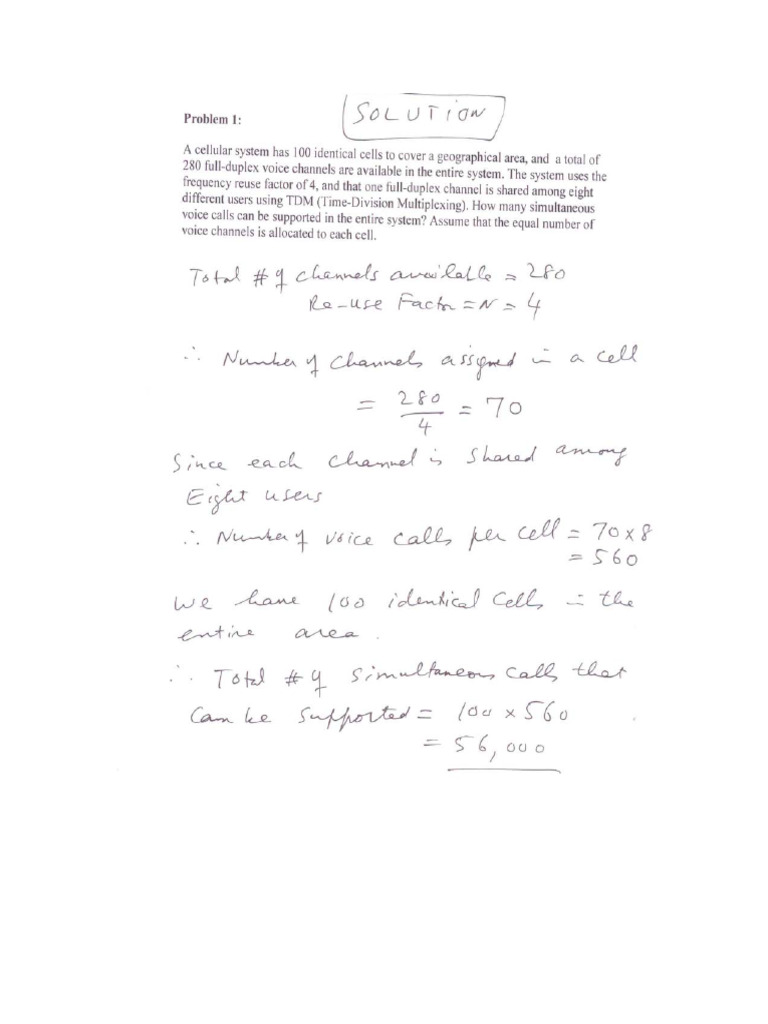 SOLUTION
Problem 1:
A cellular system has 100 identical cells to cover a geographical area, and a total of
280 full-duplex voice channels are available in the entire system. The system uses the
frequency reuse factor of 4, and that one full-duplex channel is shared among eight
different users using TDM (Time-Division Multiplexing). How many simultaneous
voice calls can be supported in the entire system? Assume that the equal number of
voice channels is allocated to each cell.
Total # of channels available = 280
Re-use Factor = N = 4
∴ Number of channels assigned in a cell
= 280/4 = 70
Since each channel is shared among
Eight users
∴ Number of voice calls per cell = 70 x 8
= 560
We have 100 identical cells in the
entire area.
∴ Total # of simultaneous calls that
can be supported = 100 x 560
= 56,000